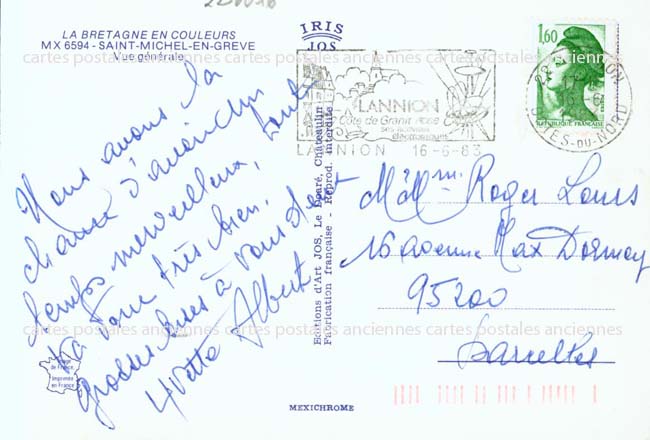 220016
IRIS
JOS
LA BRETAGNE EN COULEURS
MX 6594 - SAINT-MICHEL-EN-GREVE
Vue générale
cartes postales anciennes cartes postales anciennes cartes postales anciennes
Nous avons la
chance d'avoir du
temps merveilleux, tout
va pour très bien.
grosses bises à vous deux
Yvette Albert
Editions d'Art JOS, Le Doaré, Châteaulin
Fabrication française - Reprod. interdite
LANNION
Côte de Granit rose
ses activités
électroniques
LANNION 16-6-83
1,60
REPUBLIQUE FRANÇAISE
22 LANNION
COTES-DU-NORD
M. Mme Roger Louis
16 avenue Max Dormoy
95200
Sarcelles
cartes postales anciennes cartes postales anciennes cartes postales anciennes
Image
de France
Imprimée
en France
MEXICHROME